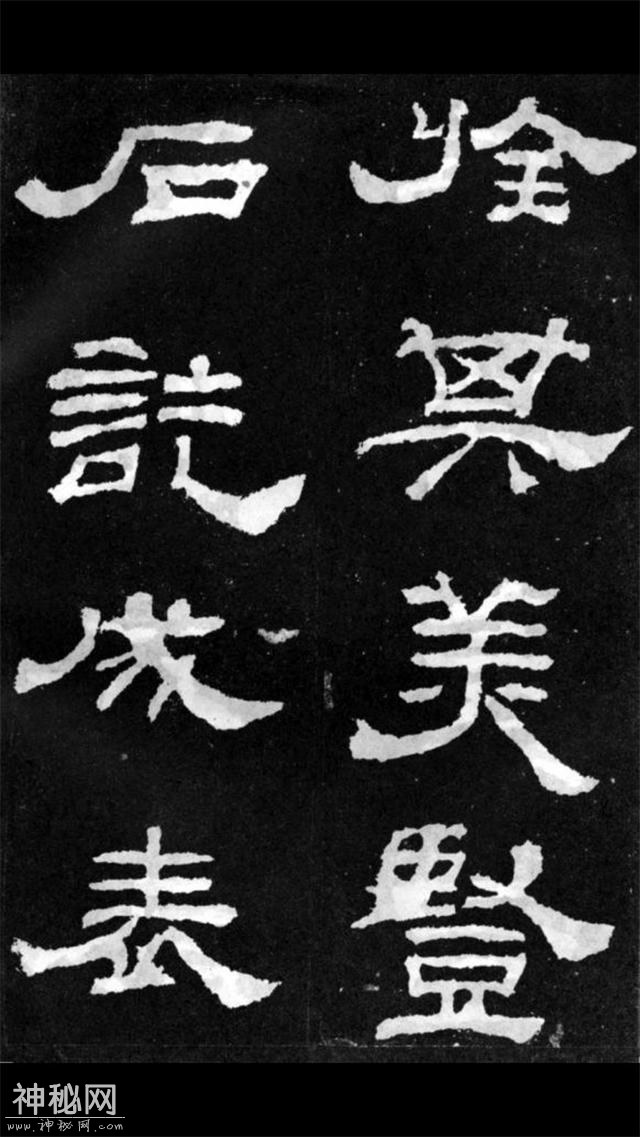 其美豎
石託成表
神秘网
www.神秘网.com